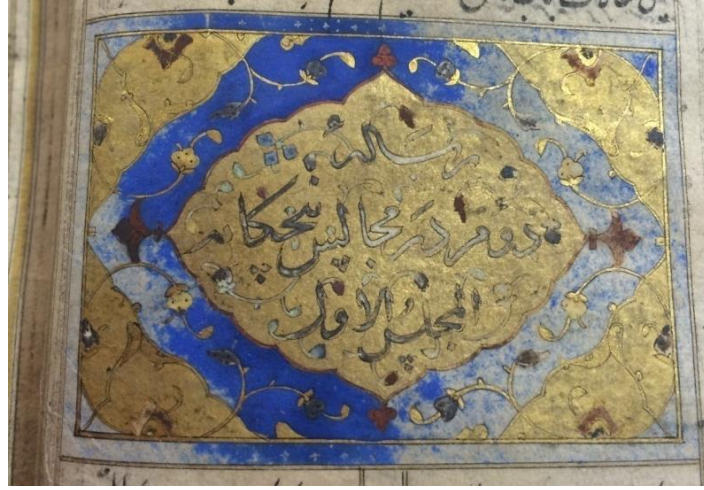 رسالهٔ
دوم در مجالس پنجگانه
المجلس الاول